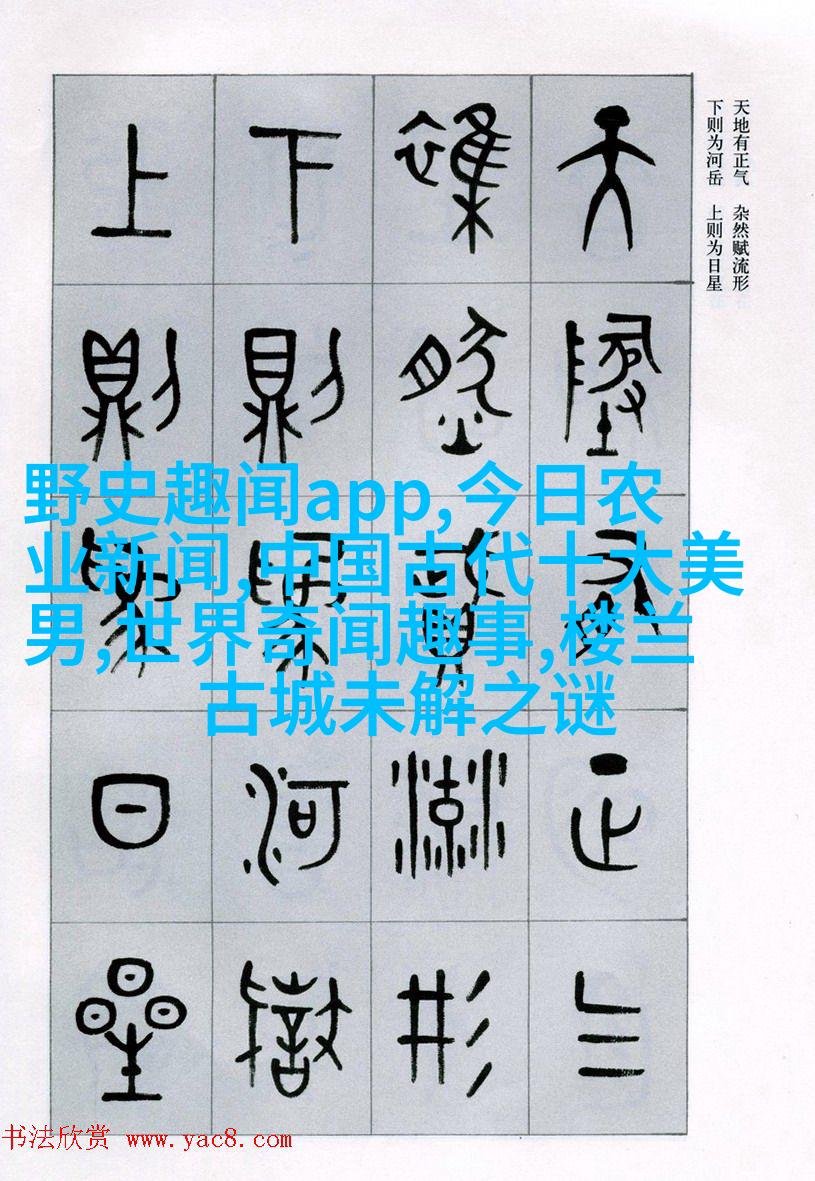 天地有正气 杂然赋流形
下则为河岳 上则为日星
天地有正气
雜然賦流形
下則為河嶽
上則為日星
野史趣闻app,今日农
业新闻,中国古代十大美
男,世界奇闻趣事,楼兰
古城未解之谜
书法欣赏 www.yac8.com